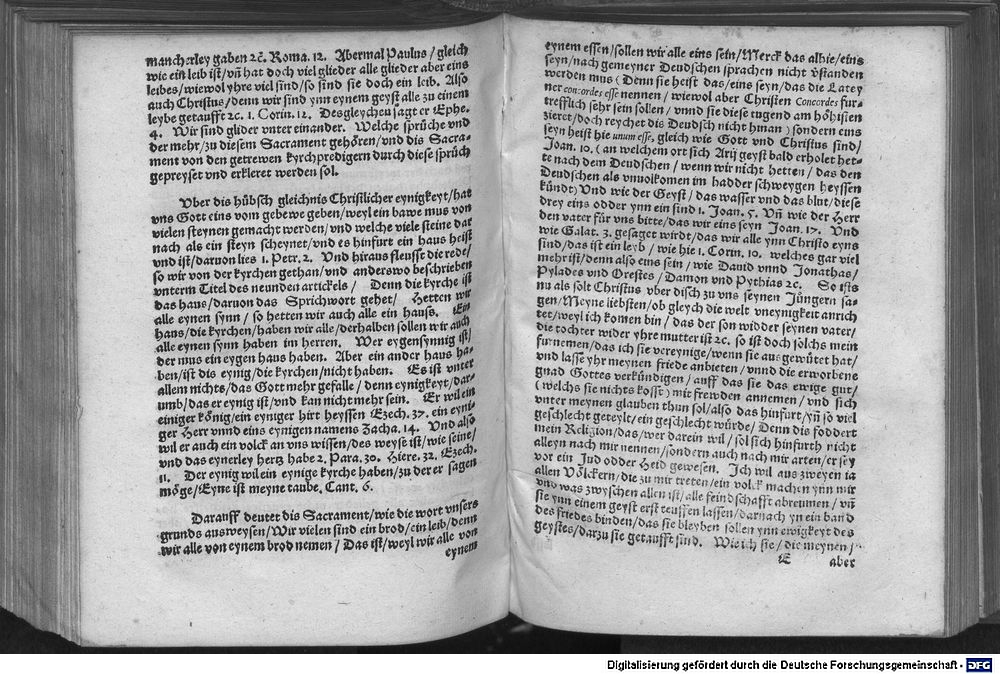 mancherley gaben ꝛc̃. Roma. 12. Abermal Paulus / gleich
wie ein leib ist / vñ hat doch viel glieder alle glieder aber eins
leibes / wiewol yhre viel sind / so sind sie doch ein leib. Also
auch Christus / denn wir sind ynn eynem geyst alle zu einem
leybe getaufft ꝛc. 1. Corin. 12. Desgleychen sagt er Ephe.
4. Wir sind glider vnter einander. Welche sprüche vnd
der mehr / zu diesem Sacrament gehören / vnd dis Sacra-
ment von den getrewen kyrchpredigern durch diese sprüch
gepreyset vnd erkleret werden sol.
Vber die hübsch gleichnis Christlicher eynigkeyt / hat
vns Gott eins vom gebewe geben / weyl ein bawe mus von
vielen steynen gemacht werden / vnd welche viele steine dar
nach als ein steyn scheynet / vnd es hinfurt ein haus heist
vnd ist / daruon lies 1. Petr. 2. Vnd hiraus fleusst die rede /
so wir von der kyrchen gethan / vnd anderswo beschrieben
vnterm Titel des neunden artickels / Denn die kyrche ist
das haus / daruon das Sprichwort gehet / Hetten wir
alle eynen synn / so hetten wir auch alle ein haus. Ein
haus / die kyrchen / haben wir alle / derhalben sollen wir auch
alle eynen synn haben im herren. Wer eygensynnig ist /
der mus ein eygen haus haben. Aber ein ander haus ha-
ben / ist die eynig / die kyrchen / nicht haben. Es ist vnter
allem nichts / das Gott mehr gefalle / denn eynigkeyt / dar-
umb / das er eynig ist / vnd kan nicht mehr sein. Er wil ein
einiger könig / ein eyniger hirt heyssen Ezech. 37. ein eyni-
ger Herr vnnd eins eynigen namens Zacha. 14. Vnd also
wil er auch ein volck an vns wissen / des weyse ist / wie seine /
vnd das eynerley hertz habe 2. Para. 30. Hiere. 32. Ezech.
11. Der eynig wil ein eynige kyrche haben / zu der er sagen
möge / Eyne ist meyne taube. Cant. 6.
Darauff deutet dis Sacrament / wie die wort vnsers
grunds ausweysen / Wir vielen sind ein brod / ein leib / denn
wir alle von eynem brod nemen / Das ist / weyl wir alle von
eynem
eynem essen / sollen wir alle eins sein / Merck das alhie / eins
seyn / nach gemeyner Deudschen sprachen nicht vstanden
werden mus ( Denn sie heist das / eins seyn / das die Latey
ner concordes esse nennen / wiewol aber Christen Concordes fur-
trefflich sehr sein sollen / vnnd sie diese tugend am höhisten
zieret / doch reychet dis Deudsch nicht hinan ) sondern eins
seyn heist hie unum esse, gleich wie Gott vnd Christus sind /
Joan. 10. ( an welchem ort sich Arij geyst bald erholet het-
te nach dem Deudschen / wenn wir nicht hetten / das den
Deudschen als vnuolkomen im hadder schweygen heyssen
kündt ) Vnd wie der Geyst / das wasser vnd das blut / diese
drey eins odder ynn ein sind 1. Joan. 5. Vñ wie der Herr
den vater für vns bitte / das wir eins seyn Joan. 17. Vnd
wie Galat. 3. gesaget wirdt / das wir alle ynn Christo eyns
sind / das ist ein leyb / wie hie 1. Corin. 10. welches gar viel
mehr ist / denn also eins sein / wie Dauid vnnd Jonathas /
Pylades vnd Orestes / Damon vnd Pythias ꝛc. So ists
nu als solt Christus vber disch zu vns seynen Jüngern sa-
gen / Meyne liebsten / ob gleych die welt vneynigkeit anrich
tet / weyl ich komen bin / das der son widder seynen vater /
die tochter wider yhre mutter ist ꝛc. so ist doch solchs mein
furnemen / das ich sie vereynige / wenn sie ausgewütet hat /
vnd lasse yhr meynen friede anbieten / vnnd die erworbene
gnad Gottes verkündigen / auff das sie das ewige gut /
( welchs sie nichts kost ) mit frewden annemen / vnd sich
vnter meynen glauben thun sol / also das hinfurt / vñ so viel
geschlecht geteylt / ein geschlecht würde / Denn dis foddert
mein Religion / das / wer darein wil / sol sich hinfurth nicht
alleyn nach mir nennen / sondern auch nach mir arten / er sey
vor ein Jud odder Heid gewesen. Ich wil aus zweyen ia
allen Völckern / die zu mir treten / ein volck machen ynn mir
vnd was zwyschen allen ist / alle feindschafft abreumen / vñ
sie ynn einem geyst erst teuffen lassen / darnach yn ein band
des friedes binden / das sie bleyben sollen ynn ewigkeyt des
geystes / darzu sie getaufft sind. Wie ich sie / die meynen /
E aber
Digitalisierung gefördert durch die Deutsche Forschungsgemeinschaft - DFG